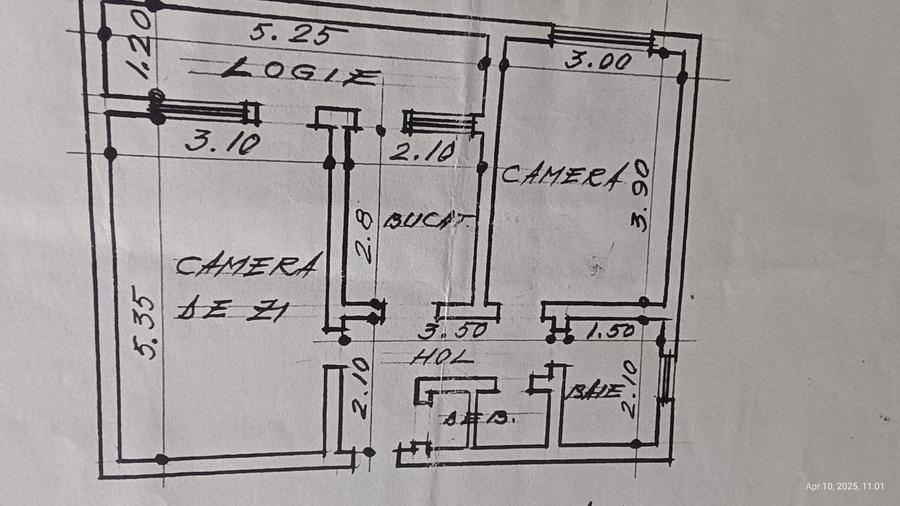 1.20
5.25
LOGIE
3.00
3.10
2.10
CAMERA
3.90
2.8
BUCAT
CAMERA
DE ZI
5.35
3.50
1.50
HOL
2.10
DEB.
BAIE
2.10
Apr 10, 2025, 11:01